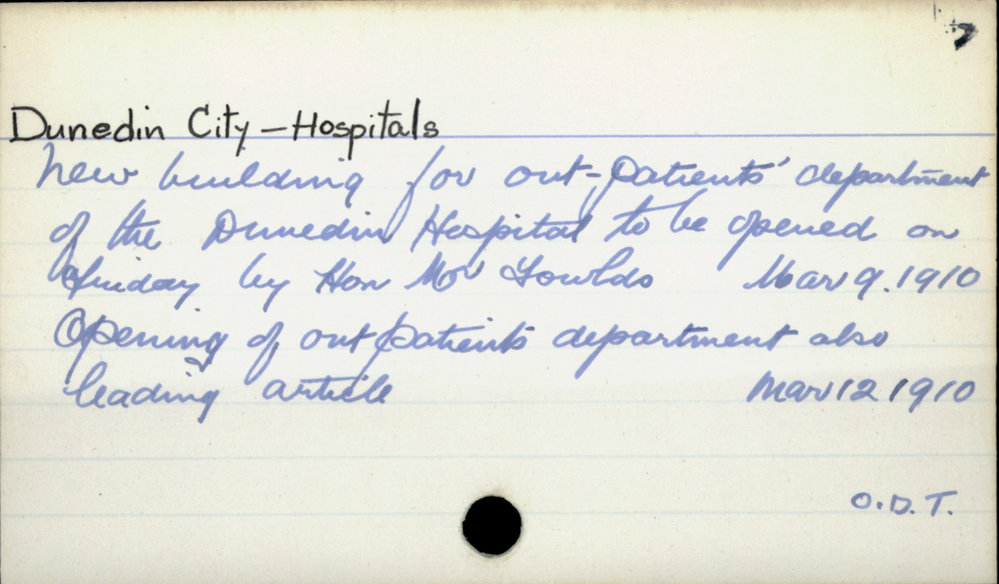 Dunedin City – Hospitals
New building for out-patients' department
of the Dunedin Hospital to be opened on
Friday by Hon Mr Fowlds Mar 9. 1910
Opening of out patients department also
leading article Mar 12 1910
O.D.T.